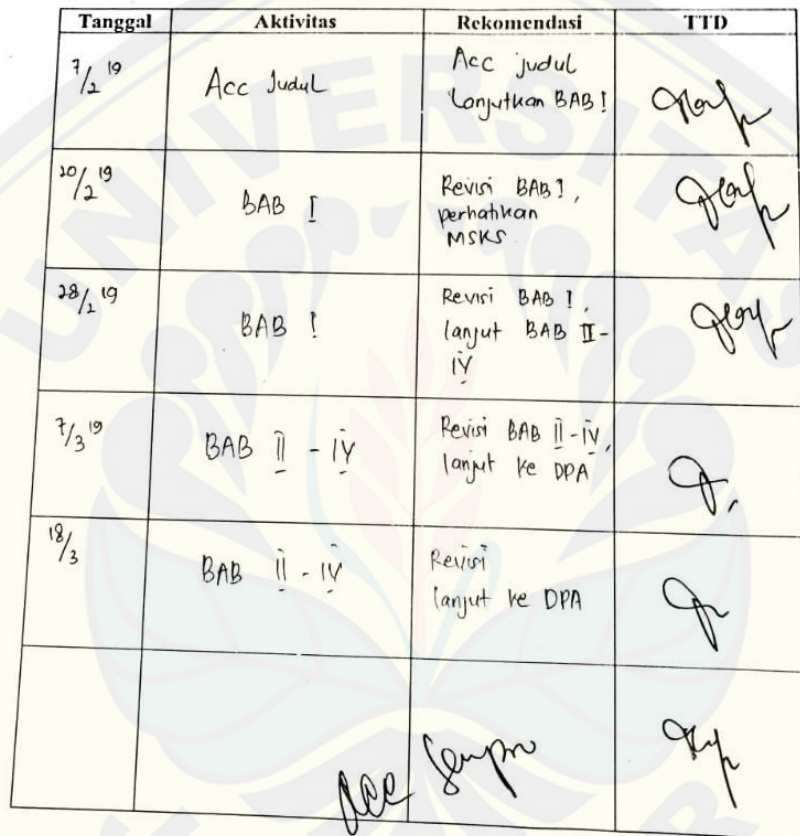 Tanggal Aktivitas Rekomendasi TTD
7/2 19 Acc Judul Acc judul
Lanjutkan BAB I
20/2 19 BAB I Revisi BAB I,
perhatikan
MSKS
28/2 19 BAB I Revisi BAB I,
lanjut BAB II-
IV
7/3 19 BAB II - IV Revisi BAB II-IV,
lanjut ke DPA
18/3 BAB II - IV Revisi
lanjut ke DPA
Acc Sempro
UNIVERSITAS